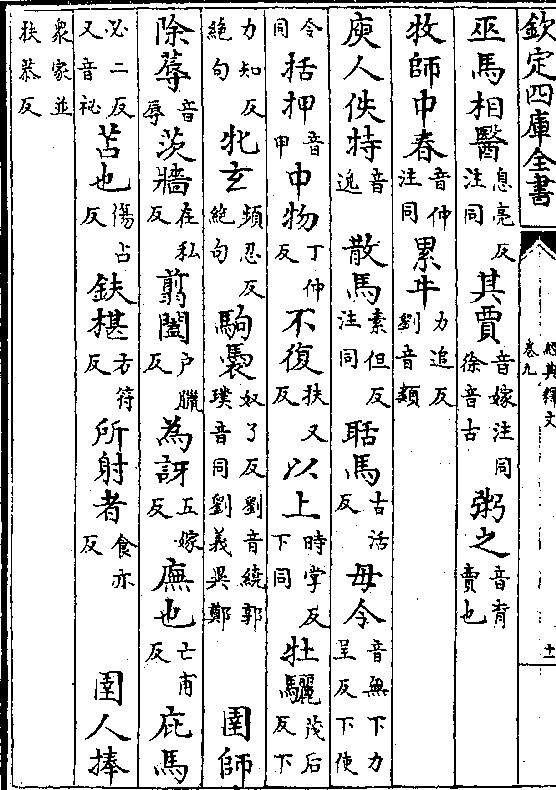 欽定四庫全書 經典釋文卷九 十一
巫馬相醫息亮反注同其賈音嫁注同徐音古粥之音育賣也
牧師中春音仲注同累牛力追反劉音類
庾人佚特音逸散馬素但反注同聒馬古活反毋令音無下力呈反下使
令同括押音申中物丁仲反不復扶又反以上時掌反下同牡驪茂后反下
力知反絶句牝玄頻忍反絶句駒褭奴了反劉音繞郭璞音同劉義異鄭圉師
除蓐音辱茨牆在私反翦闔户臘反為訝五嫁反廡也亡甫反庇馬
必二反又音祕苫也傷占反鈇椹方符反所射者食亦反圉人捧
衆家並扶恭反